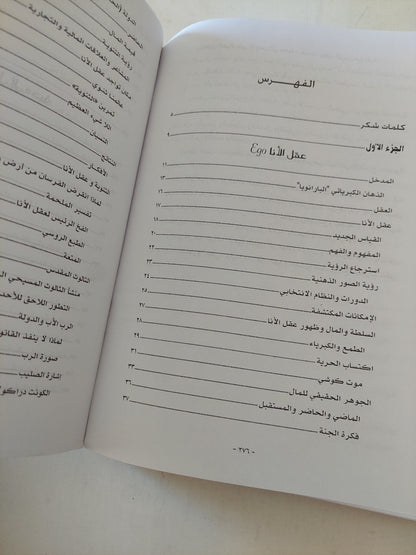 الفهرس
كلمات شكر ٥
الجزء الاول ٩
عقل الأنا Ego
المدخل ١١
الذهان الكبريائي "البارانويا" ١٣
العقل ١٦
عقل الأنا ١٧
القياس الجديد ١٨
المفهوم والفهم ٢٠
استرجاع الرؤية ٢٢
رؤية الصور الذهنية ٢٣
الدورات والنظام الانتخابي ٢٥
الإمكانات المكتشفة ٢٦
السلطة والمال وظهور عقل الأنا ٢٧
الطمع والكبرياء ٢٨
اكتساب الحرية ٢٩
موت كوشي ٣١
الجوهر الحقيقي للمال ٣٣
الماضي والحاضر والمستقبل ٣٦
فكرة الجنة ٣٧
- ٢٧٦ -
الحاضر
الدولة
قيمة المال
رؤية الثنوية
المشاعر والعلاقات المالية والتجارية
مكان تواجد عقل الأنا
عالمنا ثنوي
تمرين «الثنوية»
اللا شيء العظيم
النسيان
النتائج
الأفكار
الثنوية و عقل الأنا
لماذا انقرض الفرسان من أرض
تفسير الملحمة
الفخ الرئيس لعقل الأنا
الطبع الروسي
المتعة
الثالوث المقدس
منشأ الثالوث المسيحي
التطور اللاحق للأحد
الرب الأب والدولة
لماذا لا ينفذ القانو
صورة الرب
إشارة الصليب
الكونت دراكو